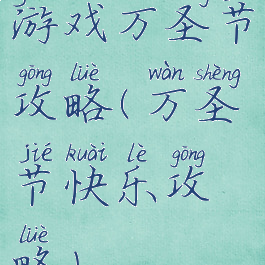 游戏万圣节
gōng lüè wàn shèng
攻略(万圣
jié kuài lè gōng
节快乐攻
lüè
略)